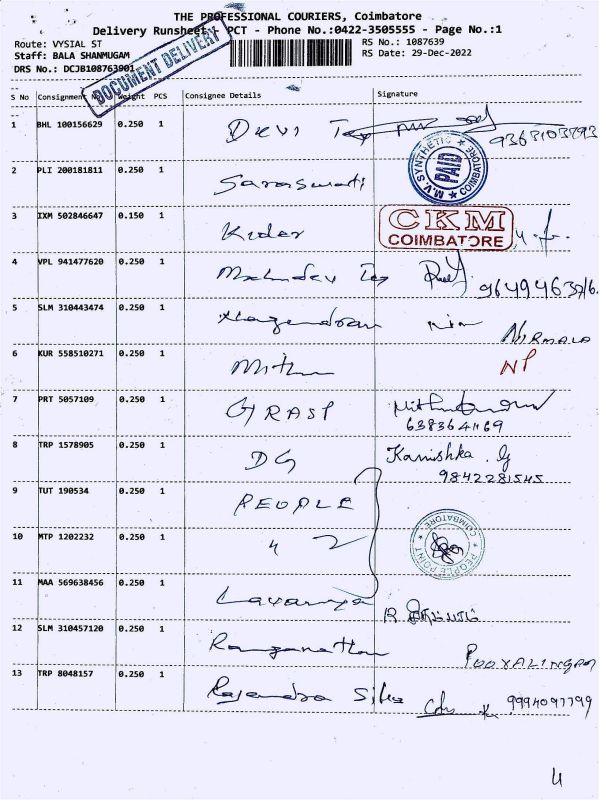 THE PROFESSIONAL COURIERS, Coimbatore
Delivery Runsheet - PCT - Phone No.:0422-3505555 - Page No.:1
Route: VYSIAL ST
RS No.: 1087639
Staff: BALA SHANMUGAM
RS Date: 29-Dec-2022
DRS No.: DCJB108763901
DOCUMENT DELIVERY
S No Consignment No Weight PCS Consignee Details Signature
1 BHL 100156629 0.250 1 Devi Tex 9363103893
2 PLI 200181811 0.250 1 Saraswati M.V. SYNTHETIC PAID COIMBATORE
3 IXM 502846647 0.150 1 Kedar CKM COIMBATORE
4 VPL 941477620 0.250 1 Mahadev Tex
5 SLM 310443474 0.250 1 Nagendran NIRMALA
6 KUR 558510271 0.250 1 Mithu NP
7 PRT 5057109 0.250 1 GRASP
8 TRP 1578905 0.250 1 DG Kanishka . G
9842281545
9 TUT 190534 0.250 1 PEOPLE
10 MTP 1202232 0.250 1 " 2 PEOPLE POINT COIMBATORE
11 MAA 569638456 0.250 1 Lavanya
12 SLM 310457120 0.250 1 Ranganathan
13 TRP 8048157 0.250 1 Rajendra Silks 9994097799
4